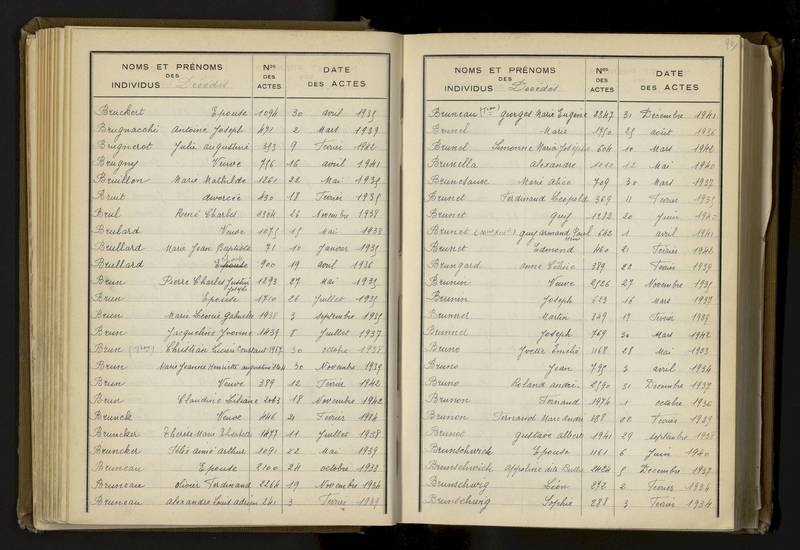 NOMS ET PRÉNOMS DES INDIVIDUS Décédés Nos DES ACTES DATE DES ACTES
Bruckert Epouse 1094 30 avril 1935
Brugnacchi Antoine Joseph 471 2 Mars 1939
Brugnerot Julie augustine 393 9 Février 1942
Brugny Veuve 756 16 avril 1941
Bruillon Marie Mathilde 1261 22 Mai 1935
Bruit divorcée 430 18 Février 1935
Brul René Charles 2304 26 Novembre 1938
Brulard Veuve 1075 15 Mai 1938
Brullard Marie Jean Baptiste 71 10 Janvier 1935
Brullard Epouse 900 19 avril 1936
Brun Pierre Charles Justin Joseph 1293 27 Mai 1935
Brun Epouse 1710 26 Juillet 1935
Brun Marie Léonie Gabrielle 1938 3 septembre 1935
Brun Jacqueline Yvonne 1439 8 Juillet 1937
Brun Christian Lucien Constant 1967 30 octobre 1938
Brun Marie Jeanne Henriette augustine 30 Novembre 1939
Brun Veuve 389 12 Février 1942
Brun Claudine 2003 18 Novembre 1942
Brunck Veuve 446 21 Février 1934
Bruncker Thérèse Marie 1477 11 Juillet 1938
Bruncker Félix aimé arthur 1091 22 Mai 1939
Bruneau Epouse 2100 24 octobre 1933
Bruneau olivier Ferdinand 2264 19 Novembre 1934
Bruneau alexandre Louis adrien 241 3 Février 1939
NOMS ET PRÉNOMS DES INDIVIDUS Décédés Nos DES ACTES DATE DES ACTES
Bruneau georges Marie Eugène 2247 31 Décembre 1941
Brunel Marie 1750 25 août 1936
Brunel Simonne Maria Josepha 604 10 Mars 1942
Brunella alexandre 1010 12 Mai 1940
Brunesaux Marie Alice 709 30 Mars 1937
Brunet Ferdinand Léopold 369 11 Février 1935
Brunet guy 1232 20 Juin 1940
Brunet guy armand Paul 642 1 avril 1941
Brunet Edmond 460 21 Février 1942
Brungard anne Céline 389 22 Février 1939
Brunin Veuve 2526 27 Novembre 1935
Brunin Joseph 623 16 Mars 1937
Brunnel Martin 349 19 Février 1939
Brunnel Joseph 769 30 Mars 1942
Bruno Yvette Emilie 1168 28 Mai 1933
Bruno Jean 795 3 avril 1934
Bruno Roland andré 2590 31 Décembre 1937
Brunon Fernand 1974 1 octobre 1936
Brunon Fernand Marc andré 388 22 Février 1939
Brunot gustave albert 1941 29 septembre 1938
Brunschwick Epouse 1161 6 Juin 1940
Brunschwick appoline dite 2424 5 Décembre 1937
Brunschwig Léon 272 2 Février 1934
Brunschwig Sophie 288 3 Février 1934